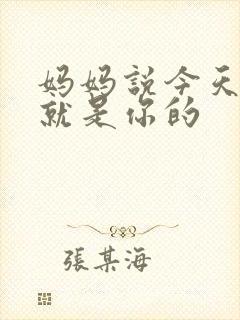 妈妈説今天
就是你的
張某海